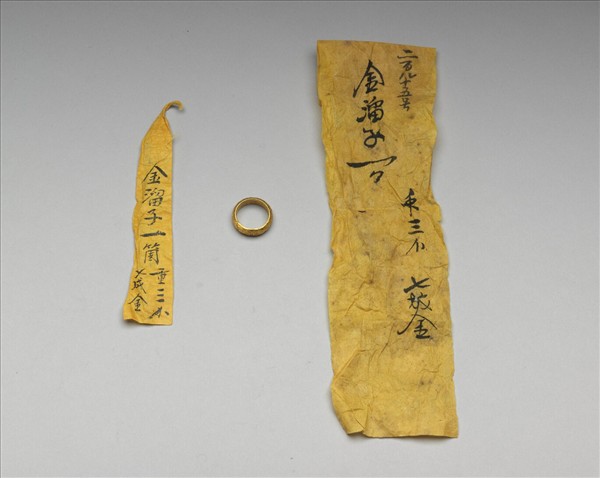 金溜子一个
重三分
七成金
金溜子一箇
重三分
七成金